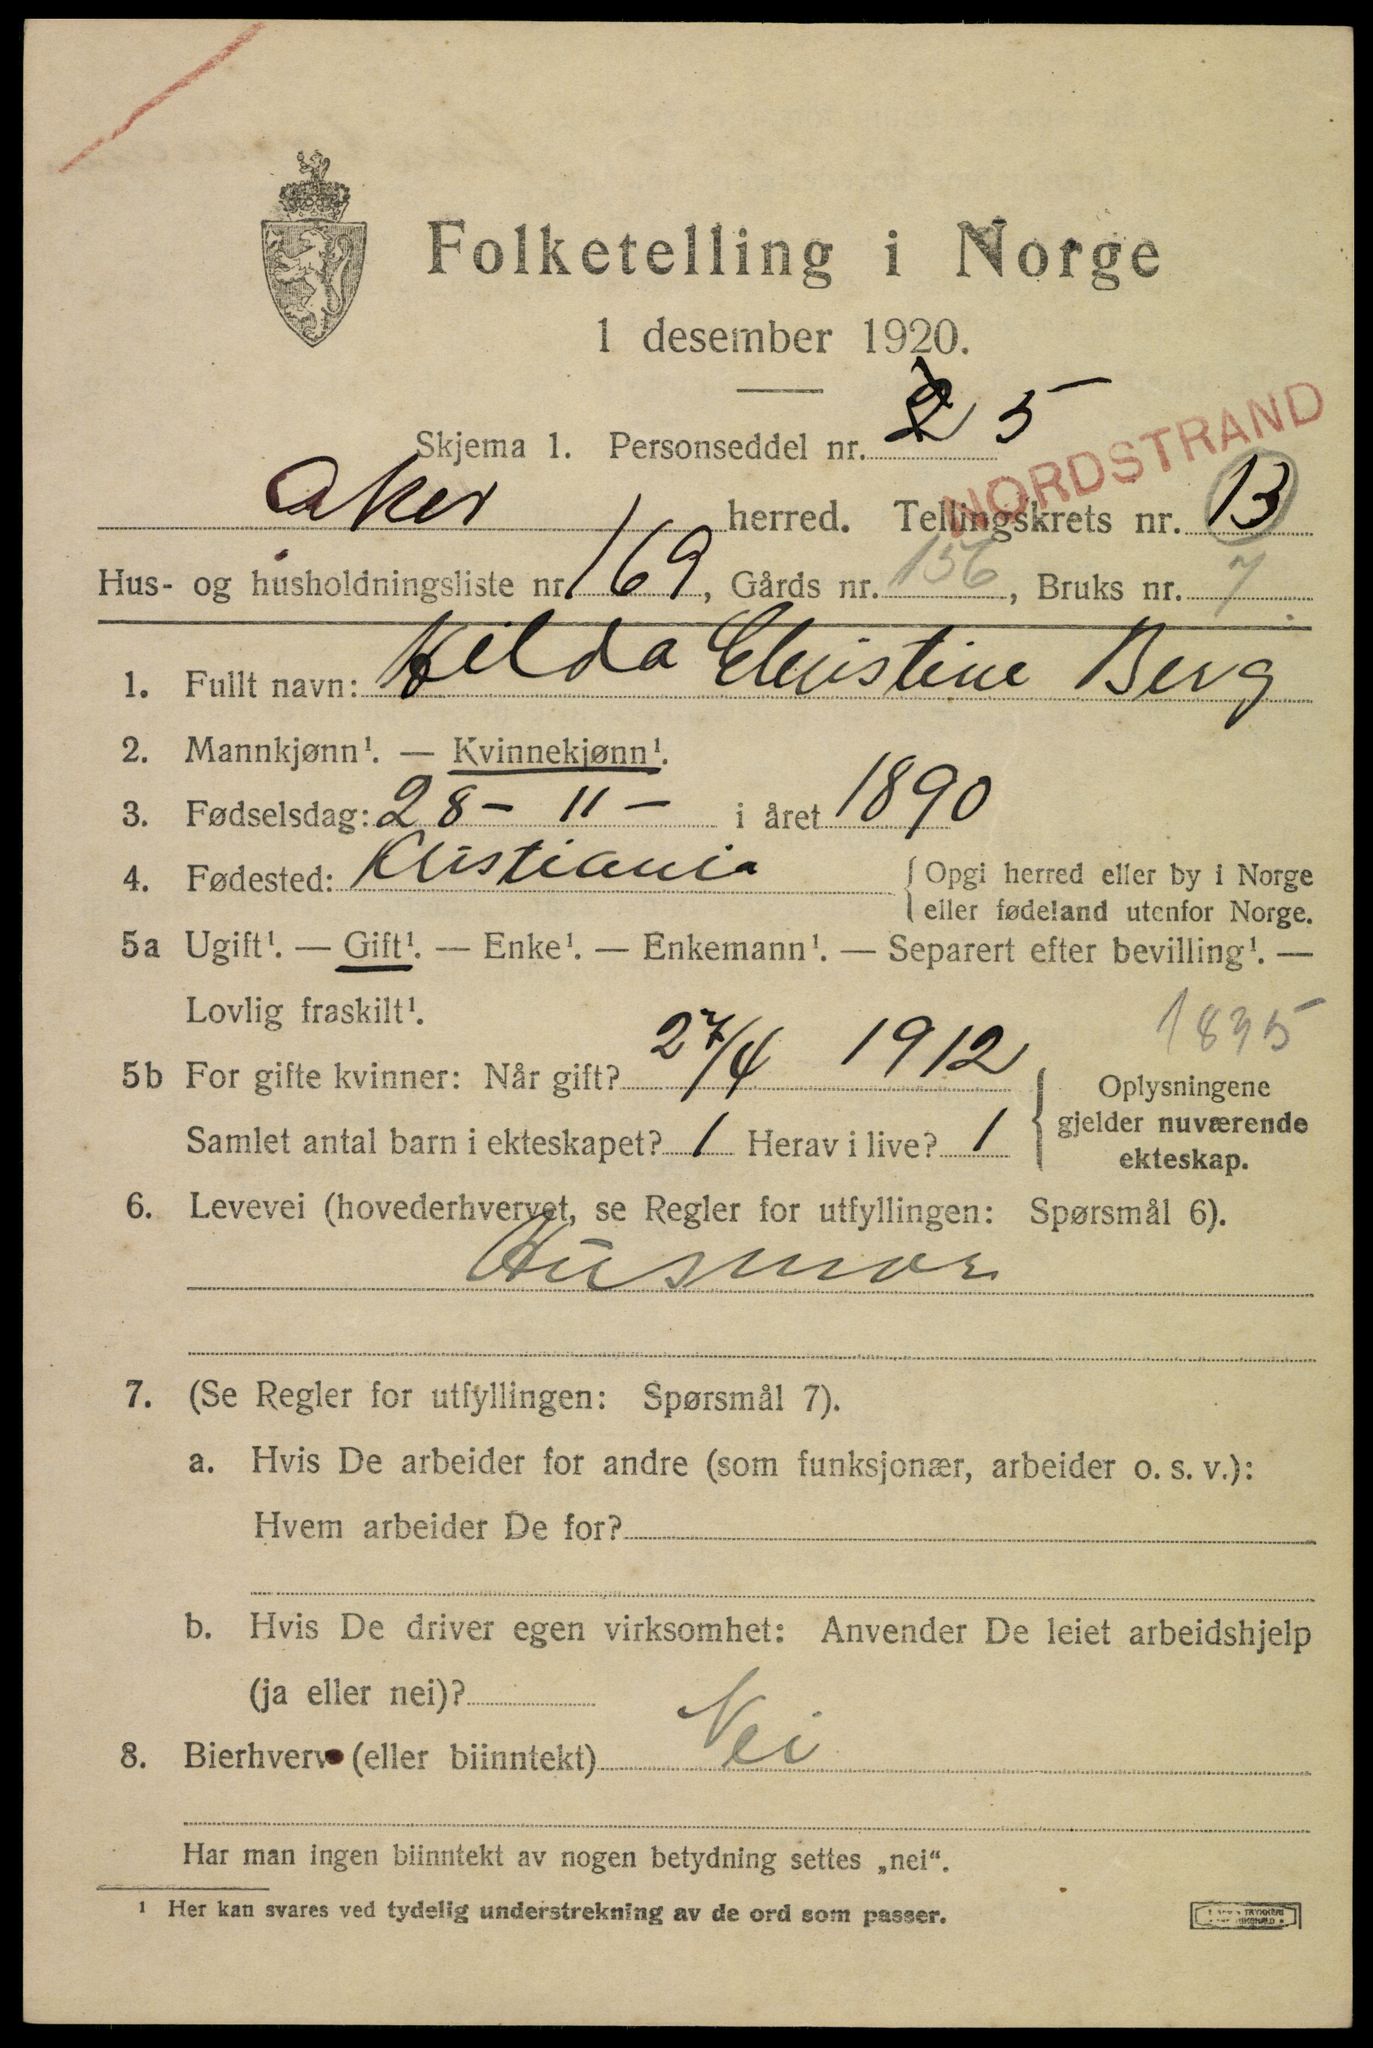 Folketelling i Norge
1 desember 1920.
Skjema 1. Personseddel nr. 2 5
NORDSTRAND
Aker herred. Tellingskrets nr. 13
Hus- og husholdningsliste nr. 169, Gårds nr. 156, Bruks nr. 7
1. Fullt navn: Hilda Christine Berg
2. Mannkjønn¹. — Kvinnekjønn¹.
3. Fødselsdag: 28 - 11 - i året 1890
4. Fødested: Kristiania { Opgi herred eller by i Norge
eller fødeland utenfor Norge.
5a Ugift¹. — Gift¹. — Enke¹. — Enkemann¹. — Separert efter bevilling¹. —
Lovlig fraskilt¹.
1835
5b For gifte kvinner: Når gift? 27/4 1912 { Oplysningene
gjelder nuværende
ekteskap.
Samlet antal barn i ekteskapet? 1 Herav i live? 1
6. Levevei (hovederhvervet, se Regler for utfyllingen: Spørsmål 6).
Husmor
7. (Se Regler for utfyllingen: Spørsmål 7).
a. Hvis De arbeider for andre (som funksjonær, arbeider o. s. v.):
Hvem arbeider De for?
b. Hvis De driver egen virksomhet: Anvender De leiet arbeidshjelp
(ja eller nei)?
8. Bierhverv (eller biinntekt) Nei
Har man ingen biinntekt av nogen betydning settes „nei“.
¹ Her kan svares ved tydelig understrekning av de ord som passer.